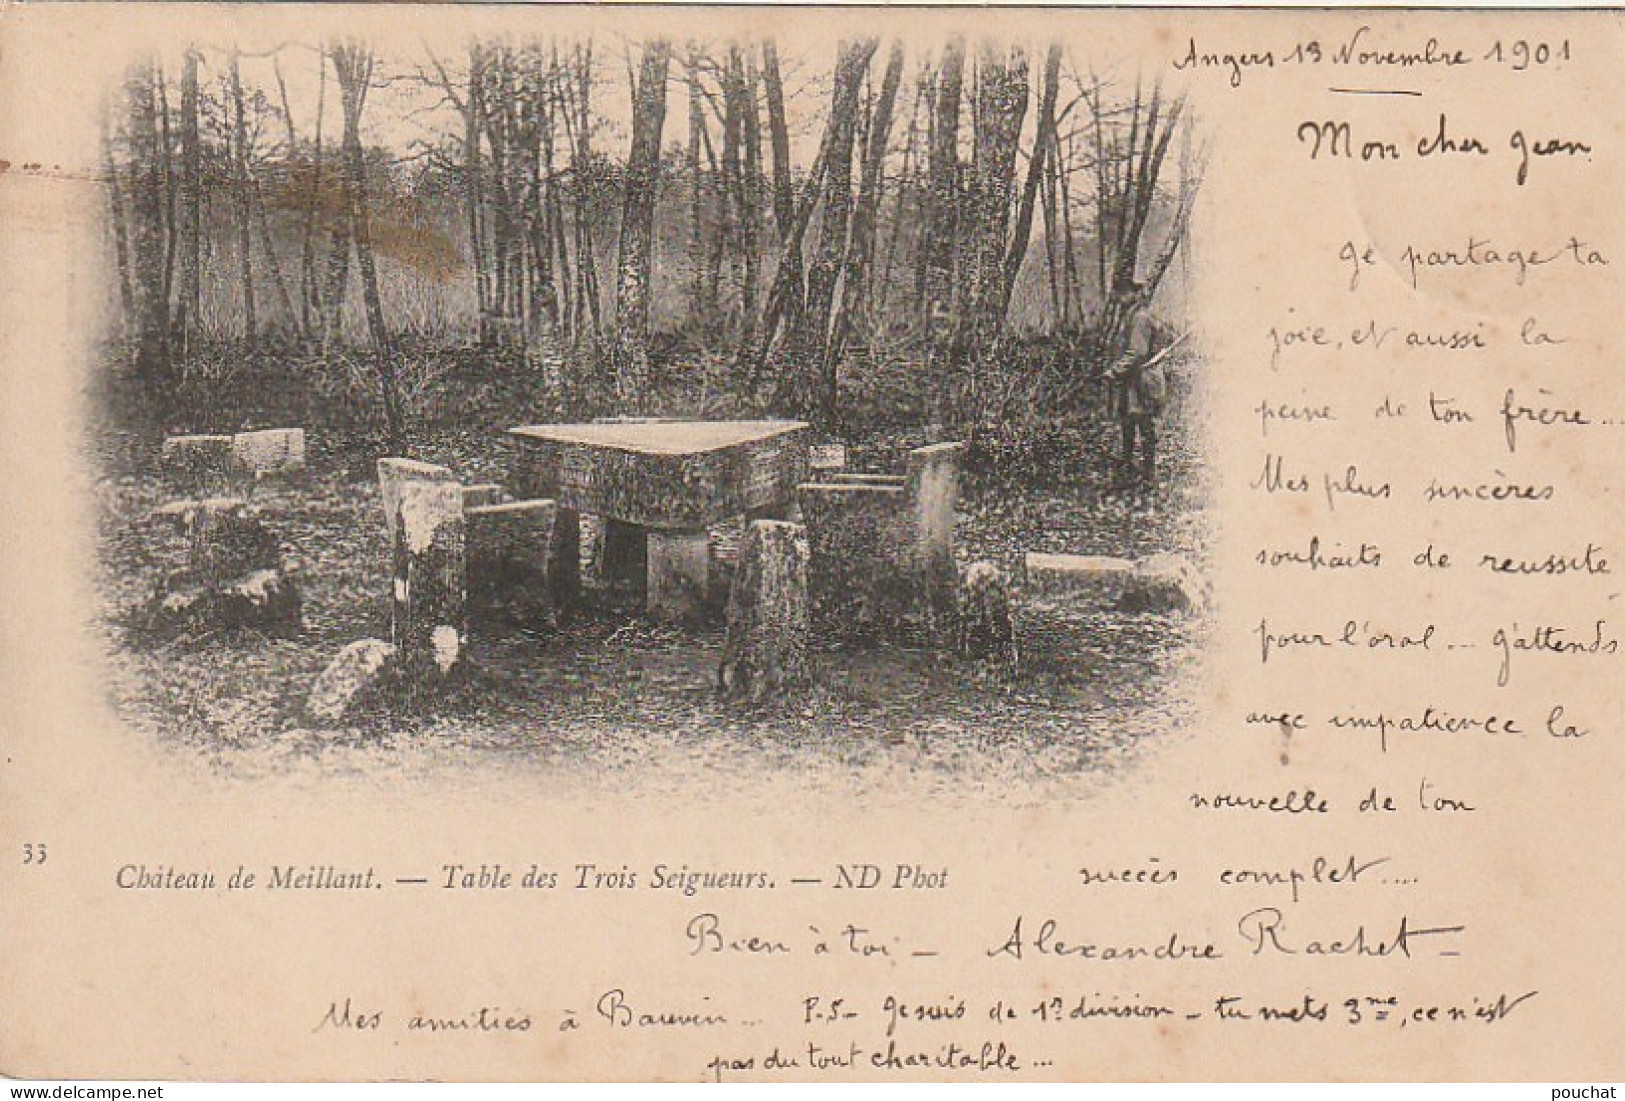 Angers 13 Novembre 1901
Mon cher Jean
Je partage ta
joie, et aussi la
peine de ton frère...
Mes plus sincères
souhaits de reussite
pour l'oral... J'attends
avec impatience la
nouvelle de ton
succès complet....
33
Château de Meillant. — Table des Trois Seigueurs. — ND Phot
Bien à toi - Alexandre Rachet -
Mes amitiés à Bauvin... P.S- Je suis de 1re division - tu mets 3me, ce n'est
pas du tout charitable...
delcampe.net
pouchat